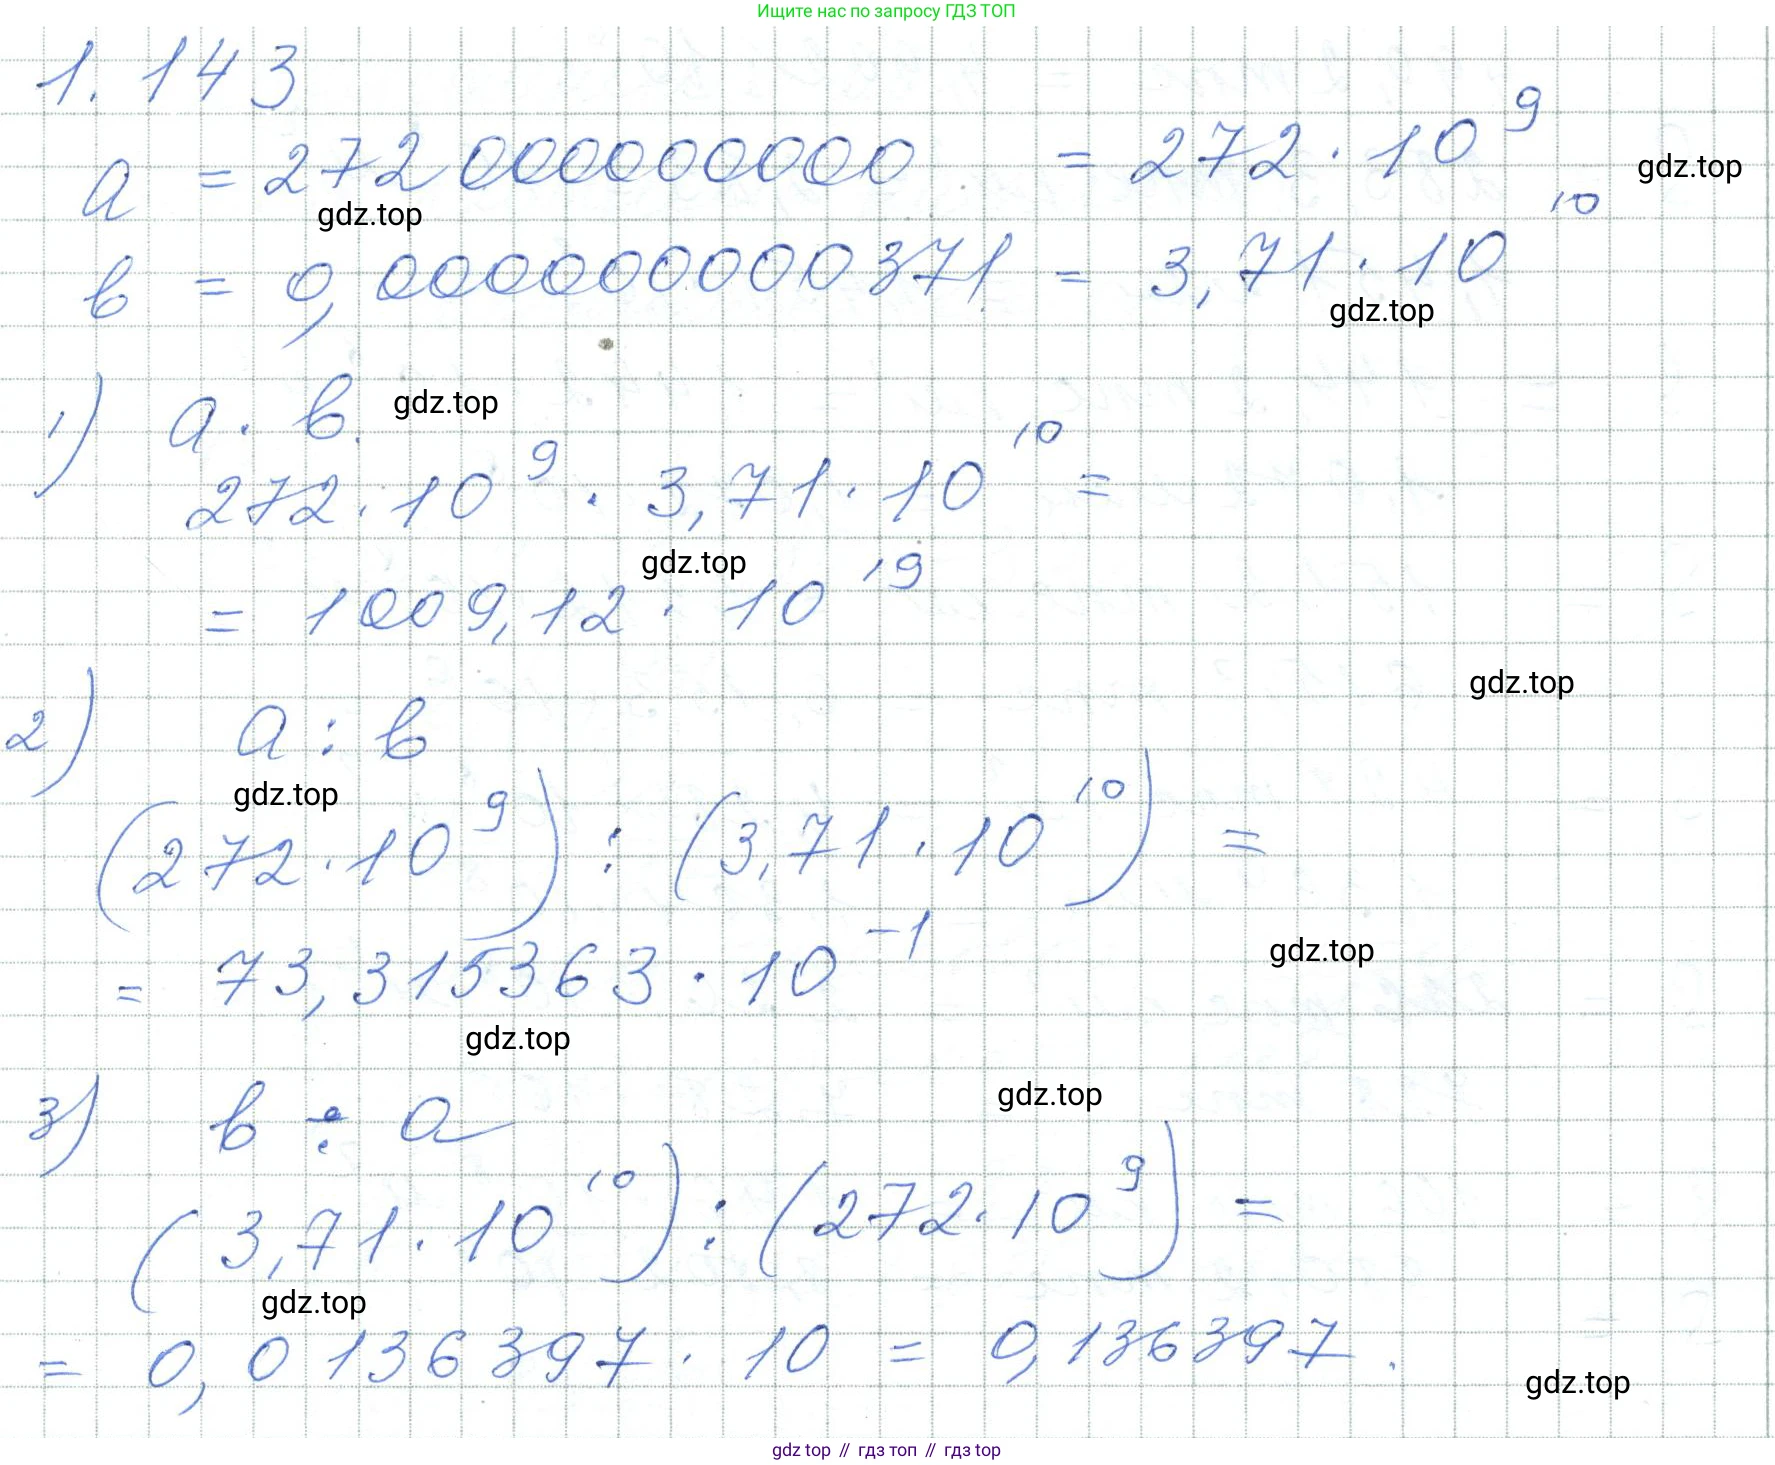 Ищите нас по запросу ГДЗ ТОП
1.143
a = 272000000000 = 272 · 10⁹
gdz.top
gdz.top
в = 0,000000000371 = 3,71 · 10¹⁰
gdz.top
1) a · в.
gdz.top
272 · 10⁹ · 3,71 · 10¹⁰ =
gdz.top
= 1009,12 · 10¹⁹
gdz.top
2) a : в
gdz.top
(272 · 10⁹) : (3,71 · 10¹⁰) =
= 73,315363 · 10⁻¹
gdz.top
gdz.top
3) в ÷ a
gdz.top
(3,71 · 10¹⁰) : (272 · 10⁹) =
gdz.top
= 0,0136397 · 10 = 0,136397.
gdz.top
gdz top // гдз топ // гдз top